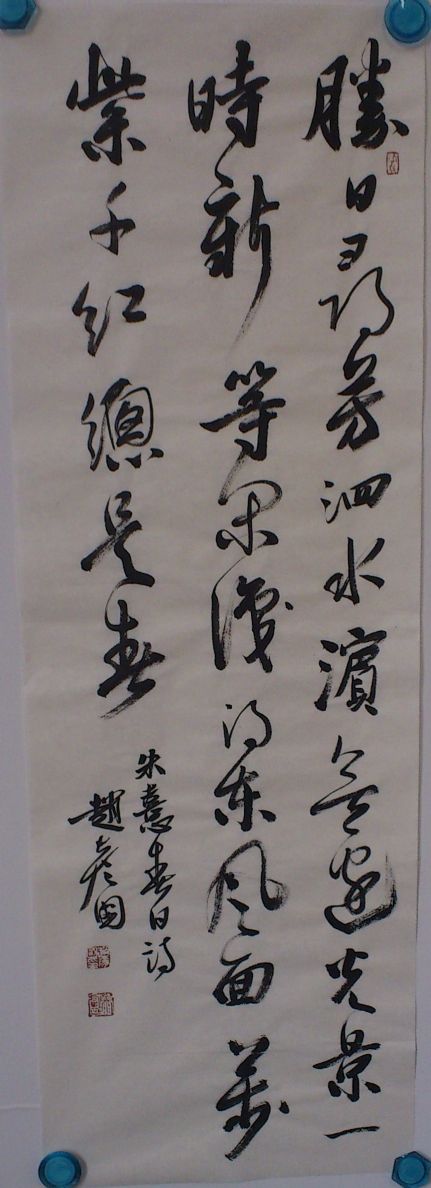 勝日尋芳泗水濱無邊光景一
時新等閑識得東風面萬
紫千紅總是春
朱熹春日詩
趙彥國